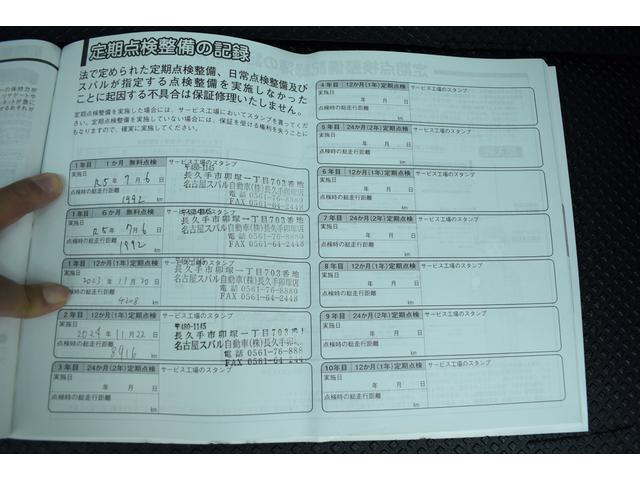 定期点検整備の記録
法で定められた定期点検整備、日常点検整備及び
スバルが指定する点検整備を実施しなかった
ことに起因する不具合は保証修理いたしません。
定期点検整備を実施した場合には、サービス工場においてスタンプを貰ってくだ
さい。定期点検整備を実施していない場合には、保証を受ける権利を失うことに
もなりますので、確実に実施してください。
1年目 1か月 無料点検 サービス工場のスタンプ
実施日
R5年 7月 6日
点検時の総走行距離
1992 km
〒480-1145
長久手市卯塚一丁目703番地
名古屋スバル自動車(株)長久手卯塚店
電話 0561-76-8880
FAX 0561-64-2448
1年目 6か月 無料点検 サービス工場のスタンプ
実施日
R5年 7月 6日
点検時の総走行距離
1992 km
長久手市卯塚一丁目703番地
名古屋スバル自動車(株)長久手卯塚店
電話 0561-76-8880
FAX 0561-64-2448
1年目 12か月(1年)定期点検 サービス工場のスタンプ
実施日
2023年 11月 20日
点検時の総走行距離
4208 km
長久手市卯塚一丁目703番地
名古屋スバル自動車(株)長久手卯塚店
電話 0561-76-8880
FAX 0561-64-2448
2年目 12か月(1年)定期点検 サービス工場のスタンプ
実施日
2024年 11月 22日
点検時の総走行距離
8916 km
〒480-1145
長久手市卯塚一丁目703番
名古屋スバル自動車(株)長久手卯
電話 0561-76-888
FAX 0561-64-244
3年目 24か月(2年)定期点検 サービス工場のスタンプ
実施日
年 月 日
点検時の総走行距離
km
4年目 12か月(1年)定期点検 サービス工場のスタンプ
実施日
年 月 日
点検時の総走行距離
km
5年目 24か月(2年)定期点検 サービス工場のスタンプ
実施日
年 月 日
点検時の総走行距離
km
6年目 12か月(1年)定期点検 サービス工場のスタンプ
実施日
年 月 日
点検時の総走行距離
km
7年目 24か月(2年)定期点検 サービス工場のスタンプ
実施日
年 月 日
点検時の総走行距離
km
8年目 12か月(1年)定期点検 サービス工場のスタンプ
実施日
年 月 日
点検時の総走行距離
km
9年目 24か月(2年)定期点検 サービス工場のスタンプ
実施日
年 月 日
点検時の総走行距離
km
10年目 12か月(1年)定期点検 サービス工場のスタンプ
実施日
年 月 日
点検時の総走行距離
km